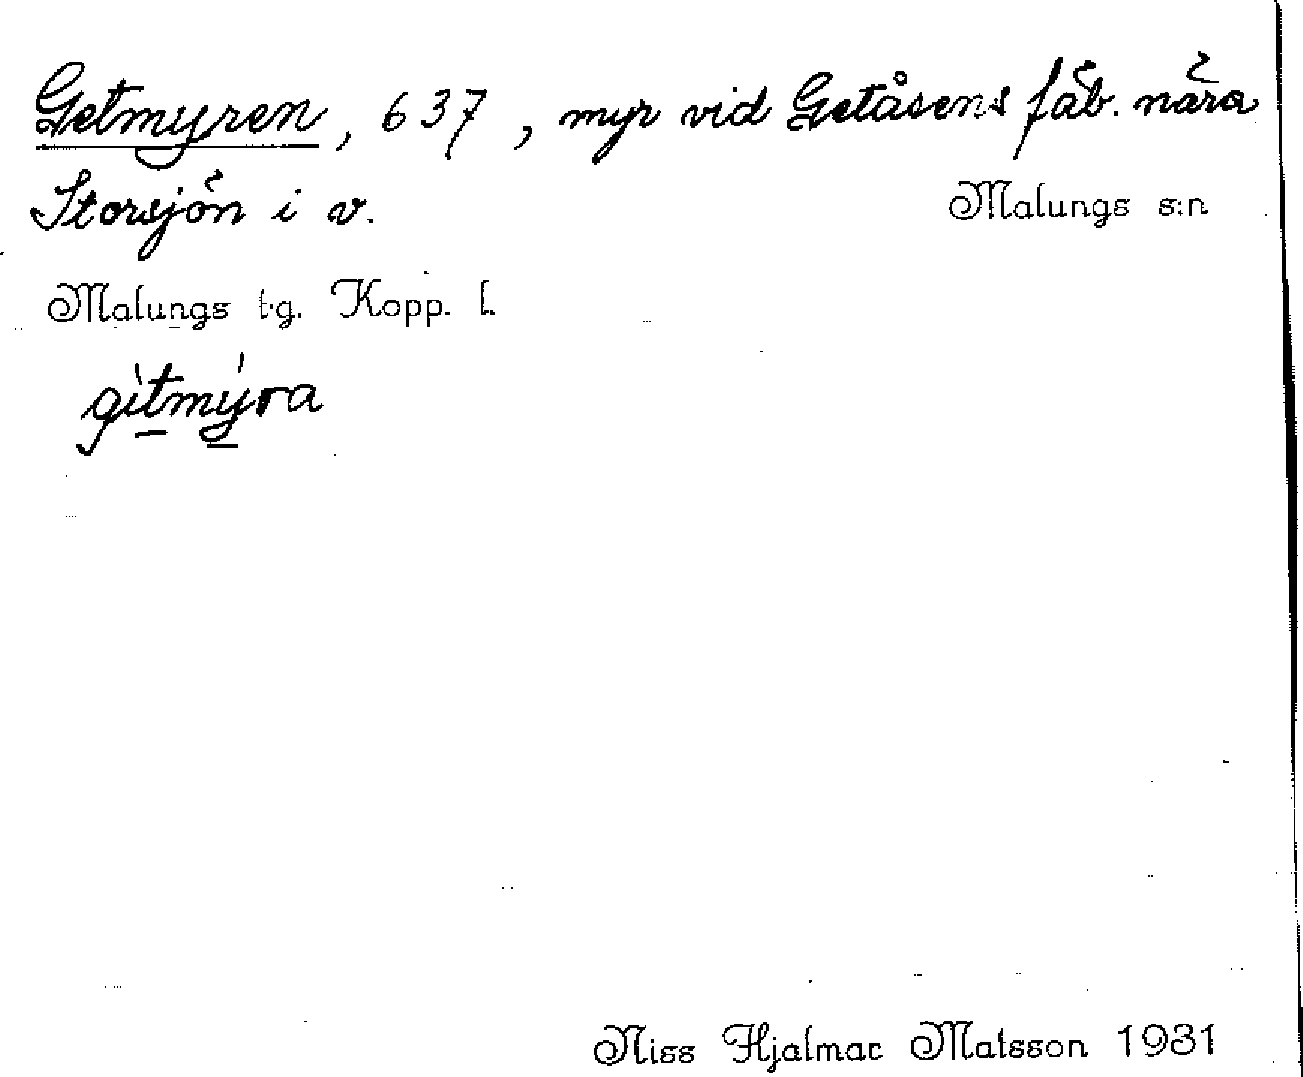 Getmyren, 637, myr vid Getåsens fäb. nära
Storsjön i v.
Malungs s:n
Malungs tg. Kopp. l.
gìtmýra
Niss Hjalmar Matsson 1931